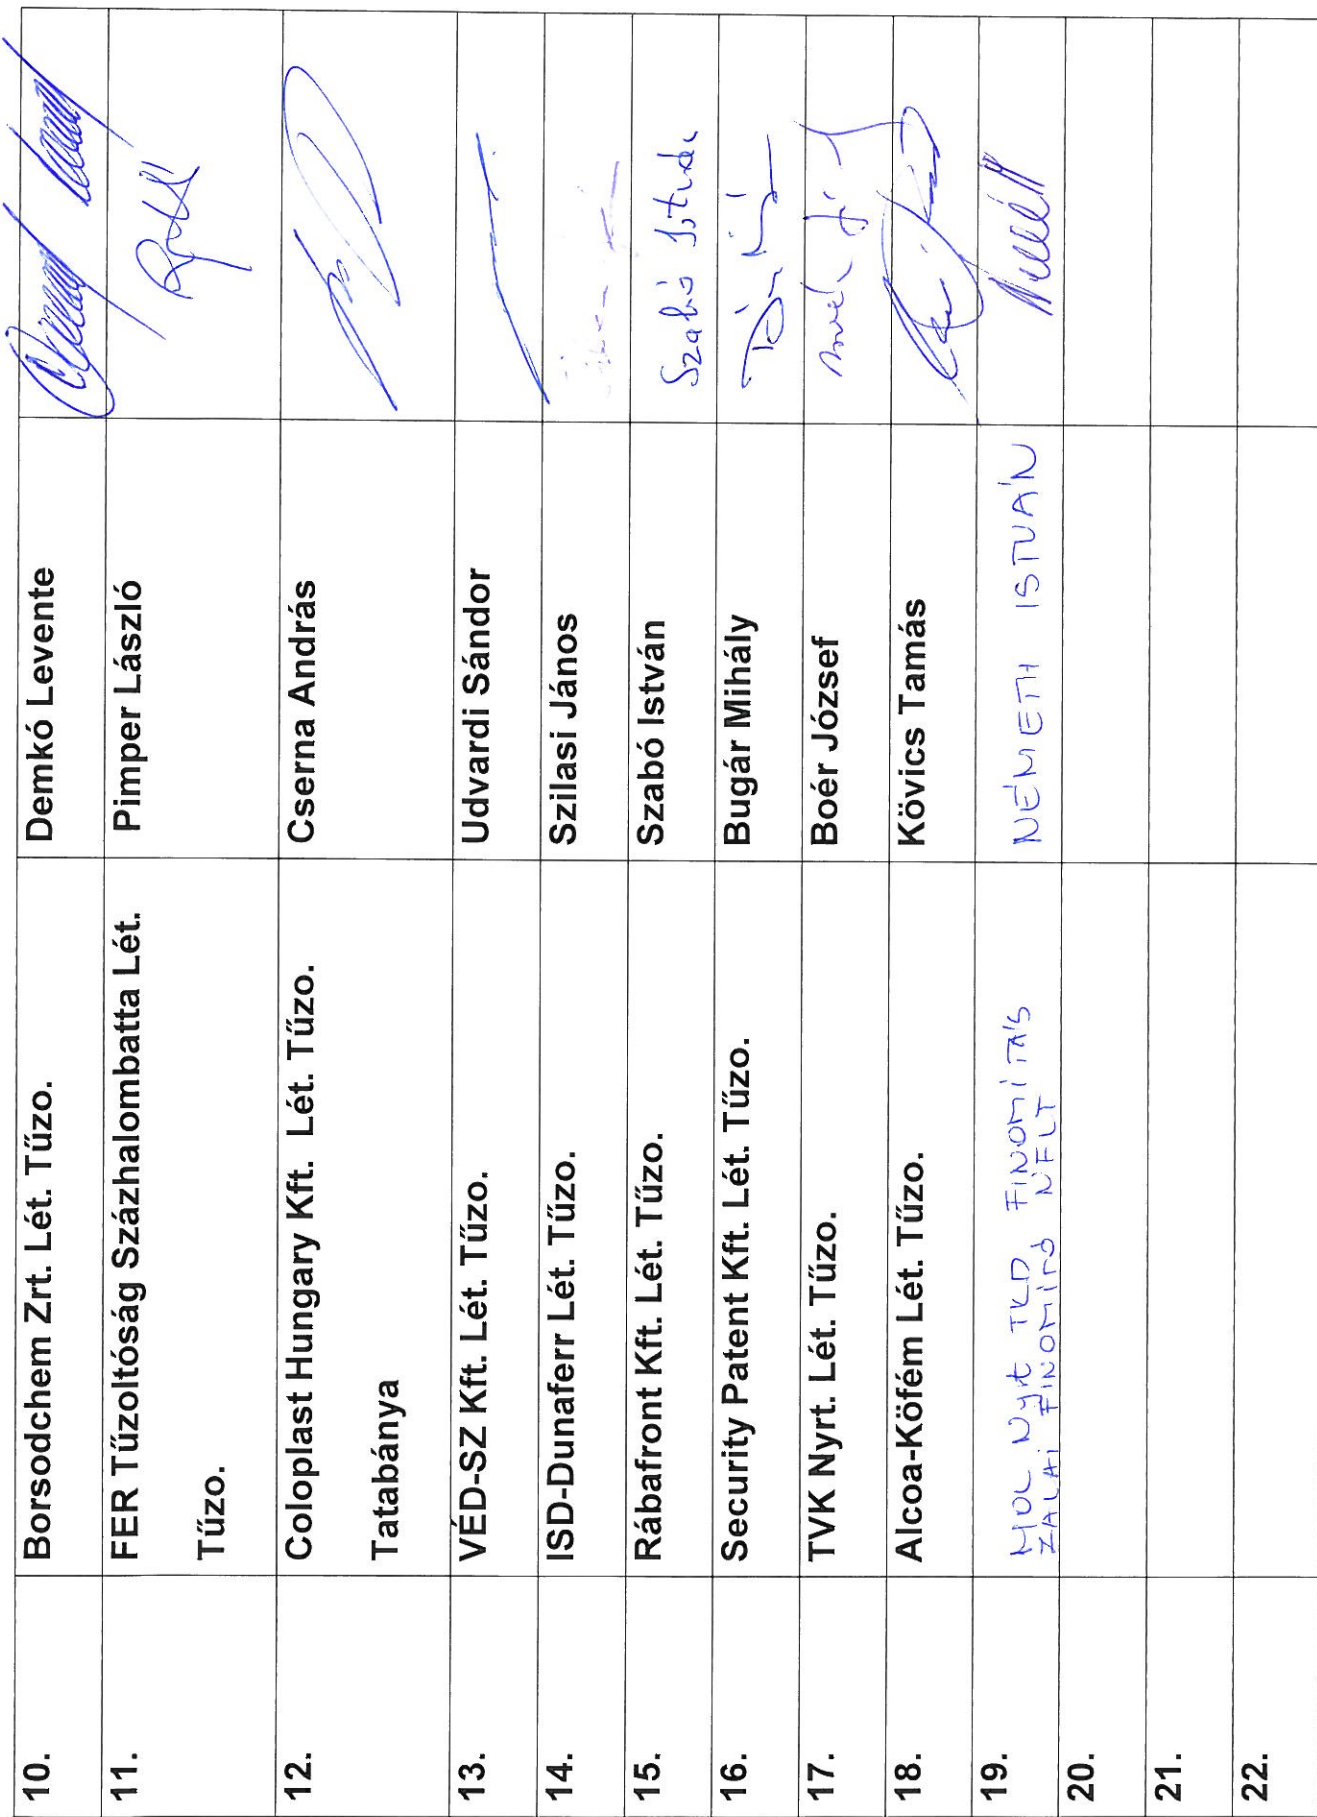 10. Borsodchem Zrt. Lét. Tűzo. Demkó Levente
11. FER Tűzoltóság Százhalombatta Lét. Pimper László
Tűzo.
12. Coloplast Hungary Kft. Lét. Tűzo. Cserna András
Tatabánya
13. VÉD-SZ Kft. Lét. Tűzo. Udvardi Sándor
14. ISD-Dunaferr Lét. Tűzo. Szilasi János
15. Rábafront Kft. Lét. Tűzo. Szabó István Szabó István
16. Security Patent Kft. Lét. Tűzo. Bugár Mihály
17. TVK Nyrt. Lét. Tűzo. Boér József
18. Alcoa-Köfém Lét. Tűzo. Kövics Tamás
19. MOL Nyrt TKD FINOMÍTÁS NÉMETH ISTVÁN
ZALAI FINOMÍTÓ NFLT
20.
21.
22.